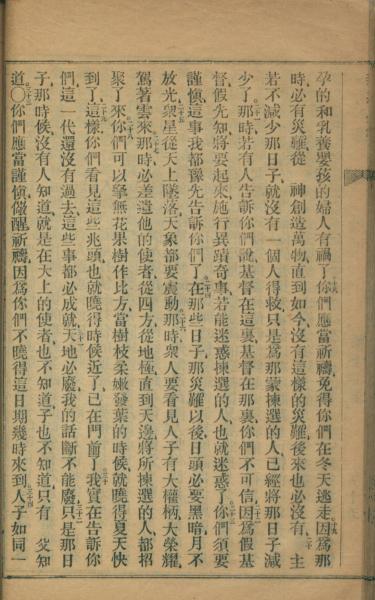 孕的和乳養嬰孩的婦人有禍了你們應當祈禱免得你們在冬天逃走因爲那
時必有災難從　神創造萬物直到如今沒有這樣的災難後來也必沒有　主
若不減少那日子就沒有一個人得救只是爲那蒙揀選的人已經將那日子減
少了那時若有人告訴你們說基督在這裏基督在那裏你們不可信因爲假基
督假先知將要起來施行異蹟奇事若能迷惑揀選的人也就迷惑了你們須要
謹愼這事我都豫先告訴你們了○在那些日子那災難以後日頭必要黑暗月不
放光衆星從天上墜落天象都要震動那時衆人要看見人子有大權柄大榮耀
駕著雲來那時必差遣他的使者從四方從地極直到天邊將所揀選的人都招
聚了來你們可以拏無花果樹作比方當樹枝柔嫩發葉的時候就曉得夏天快
到了這樣你們看見這些兆頭也就曉得時候近了已在門前了我實在告訴你
們這一代還沒有過去這些事都必成就天地必廢我的話斷不能廢只是那日
子那時候沒有人知道就是在天上的使者也不知道子也不知道只有　父知
道○你們應當謹愼儆醒祈禱因爲你們不曉得這日期幾時來到人子如同一